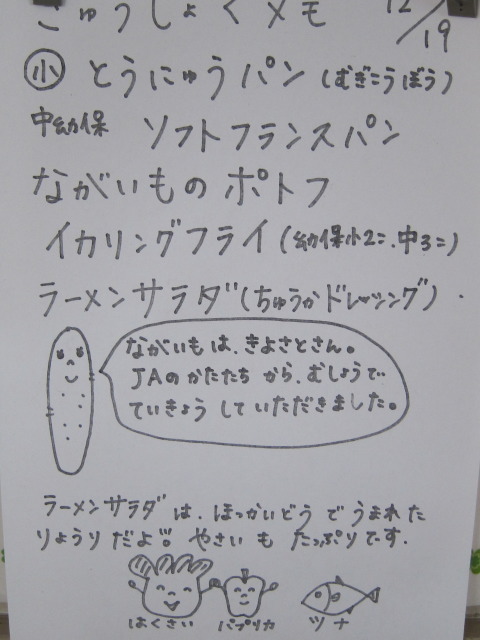 きゅうしょくメモ 12/19
小 とうにゅうパン (むぎこうぼう)
中幼保 ソフトフランスパン
ながいものポトフ
イカリングフライ (幼保小2こ、中3こ)
ラーメンサラダ (ちゅうかドレッシング)
ながいもは、きよさとさん。
JAのかたたちから、むしょうで
ていきょうしていただきました。
ラーメンサラダは、ほっかいどうでうまれた
りょうりだよ!! やさいもたっぷりです。
はくさい パプリカ ツナ